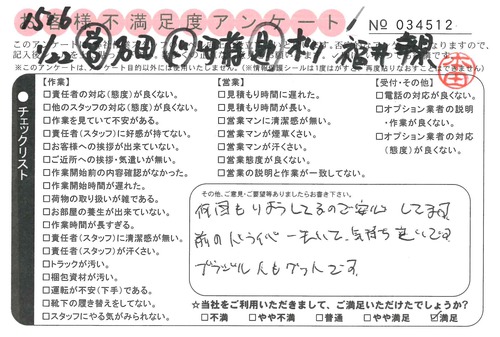 お客様不満足度アンケート
No 034512
1526
1/22
【作業】
□責任者の対応(態度)が良くない。
□他のスタッフの対応(態度)が良くない。
□作業を見ていて不安がある。
□責任者(スタッフ)に好感が持てない。
□お客様への挨拶が出来ていない。
□ご近所への挨拶・気遣いが無い。
□作業開始前の内容確認がなかった。
□作業開始時間が遅れた。
□荷物の取り扱いが雑である。
□お部屋の養生が出来ていない。
□作業時間が長すぎる。
□責任者(スタッフ)に清潔感が無い。
□責任者(スタッフ)が汗くさい。
□トラックが汚い。
□梱包資材が汚い。
□運転が不安(下手)である。
□靴下の履き替えをしてない。
□スタッフにやる気がみられない。
【営業】
□見積もり時間に遅れた。
□見積もり時間が長い。
□営業マンに清潔感が無い。
□営業マンが煙草くさい。
□営業マンが汗くさい。
□営業態度が良くない。
□営業の説明と作業が一致してない。
【受付・その他】
□電話の対応が良くない。
□オプション業者の説明・作業が良くない。
□オプション業者の対応(態度)が良くない。
チェックリスト
その他、ご意見・ご要望等ありましたらお書き下さい。
何回もりようしてるので安心してます
前のドライバー
気持ち
ブラジル人もグットです。
☆当社をご利用いただきまして、ご満足いただけたでしょうか?
□不満 □やや不満 □普通 □やや満足 ☑満足